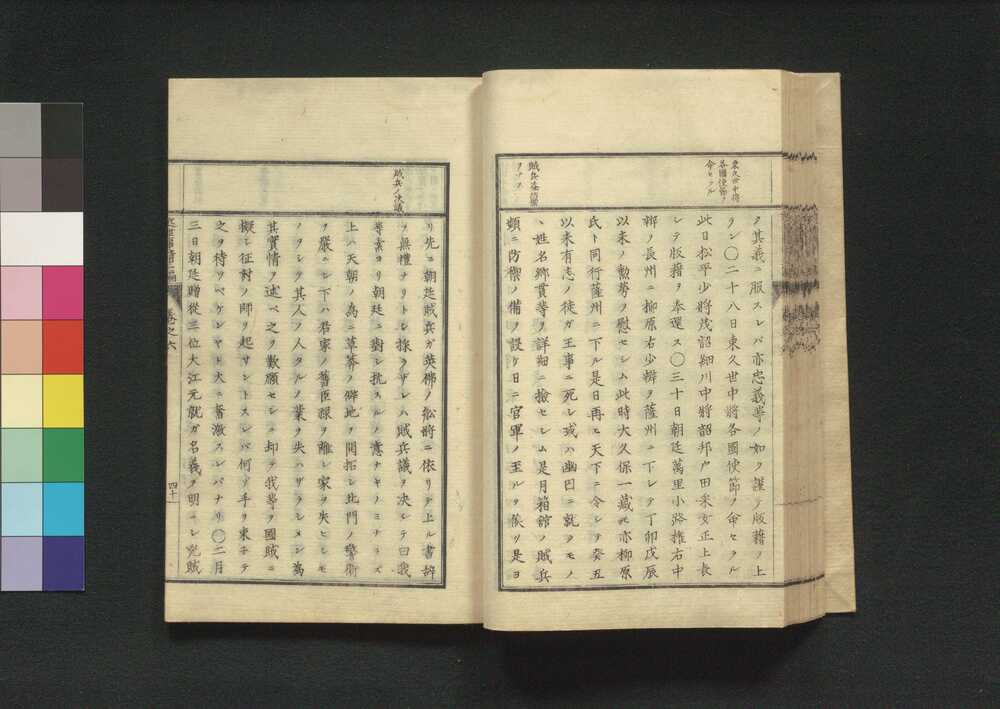 東久世中将
各國使節ヲ
命セラル
ヲ其義ニ服スレバ亦忠義等ノ如ク謹テ版籍ノ上
ラン〇二十八日東久世中將各國使節ノ命セラル
此日松平少將茂詔細川中將韶邦戸田采女正上表
シテ版籍ヲ奉還ス〇三十日朝廷萬里小路權右中
辨ヲ長州ニ柳原右少辨ヲ薩州ニ下シテ丁卯戊辰
以来ノ勲勞ヲ慰セシム此時大久保一藏モ亦柳原
氏ト同行薩州ニ下ル是日再ヒ天下ニ令シテ癸丑
以来有志ノ徒ガ王事ニ死シ或ハ幽囚ニ就クモノ
ヽ姓名郷貫等ヲ詳細ニ撿セシム是月箱舘ノ賊兵
頻ニ防禦ノ備ヲ設リ日ニ官軍ノ至ルヲ俟リ是ヨ
賊兵ノ決議
リ先ニ朝廷賊兵ガ英佛ノ舩將ニ依リテ上ル書辞
ヲ無禮ナリトシ採ラザレハ賊兵議ヲ决シテ曰我
等素ヨリ朝廷ニ對シ抗スルノ意ナキノミナラズ
上ハ天朝ノ為ニ草莽ノ僻地ヲ開拓シ北門ノ警衛
ヲ嚴ニシ下ハ君家ノ舊臣禄ヲ離レ家ヲ失ヒシモ
ノヲシテ其人ノ人タルノ業ヲ失ハザラシメン為
其實情ヲ述ベ之ヲ歎願セシヲ却テ我等ヲ國賊ニ
擬シ征討ノ師ヲ起サントスレバ何ゾ手ヲ束子テ
之ヲ待ツベケンヤト大ニ奮激スレバナリ〇二月
三日朝廷贈從三位大江元就ガ名義ヲ明ニシ兇賊
卷之六
四十一